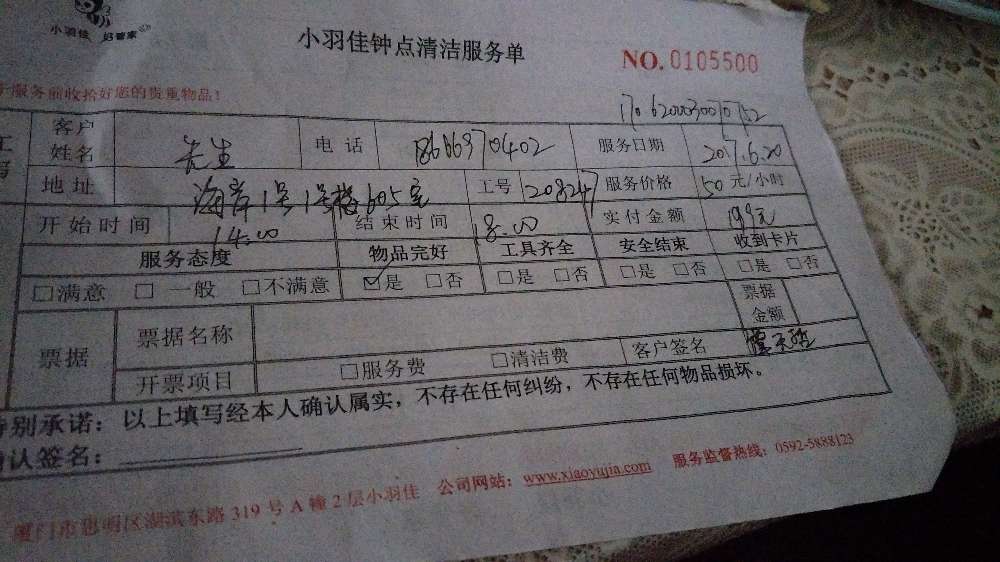 小羽佳 好管家
小羽佳钟点清洁服务单
NO.0105500
服务前收拾好您的贵重物品!
客户姓名 先生 电话 18666970402 服务日期 2017.6.20
地址 海岸1号1号楼605室 工号 208247 服务价格 50元/小时
开始时间 14:00 结束时间 18:00 实付金额 199元
服务态度 物品完好 工具齐全 安全结束 收到卡片
□满意 □一般 □不满意 ☑是 □否 □是 □否 □是 □否 □是 □否
票据 票据名称 票据金额
开票项目 □服务费 □清洁费 客户签名
特别承诺:以上填写经本人确认属实,不存在任何纠纷,不存在任何物品损坏。
确认签名:
厦门市思明区湖滨东路319号A幢2层小羽佳 公司网站:www.xiaoyujia.com 服务监督热线:0592-5888123